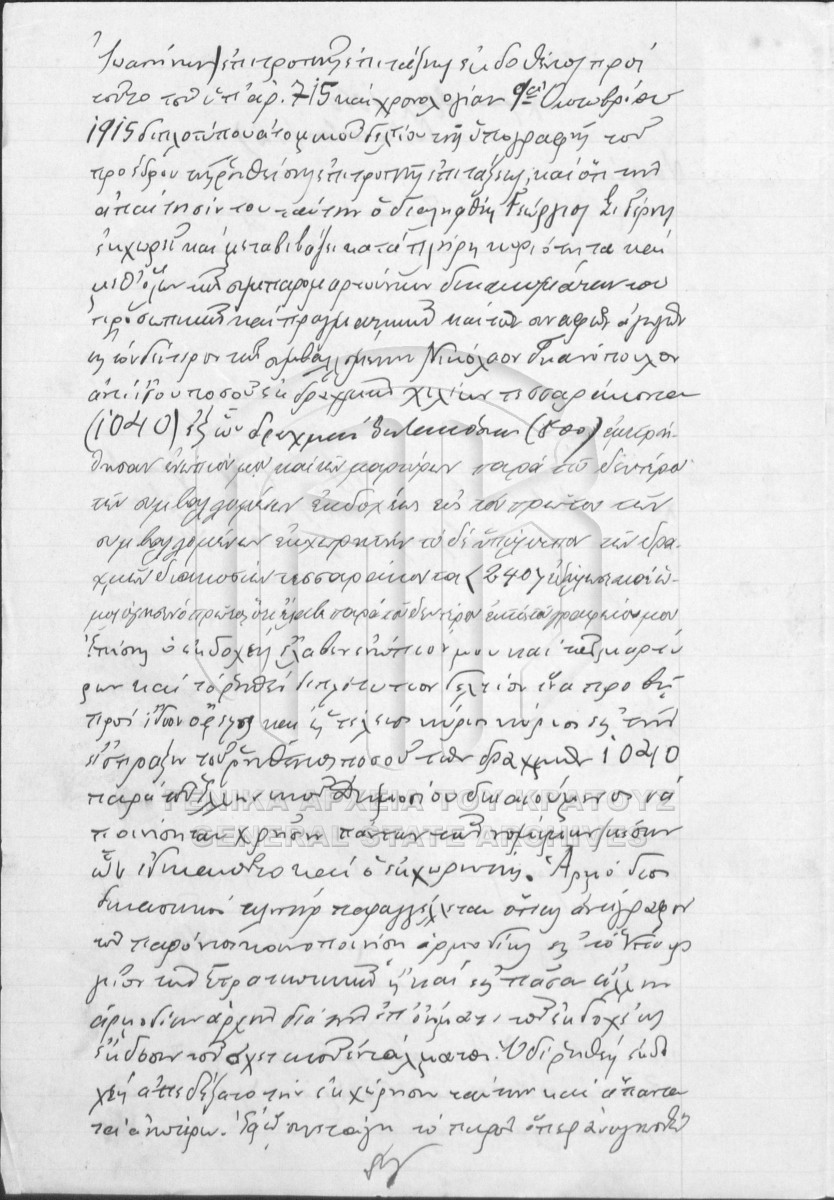 Ἰωαννίνων) ἐπιτροπῆς ἐπιτάξεως ἐκδοθέντος πρὸς
τοῦτο τοῦ ὑπ' ἀρ. 715 καὶ χρονολογίαν 9ης Ὀκτωβρίου
1915 διπλοτύπου ἀτομικοῦ δελτίου τῆς ὑπογραφῆς τοῦ
προέδρου τῆς ρηθείσης ἐπιτροπῆς ἐπιτάξεως, καὶ ὅτι τὴν
ἀπαίτησίν του ταύτην ὁ διαληφθεὶς Γεώργιος
ἐκχωρεῖ καὶ μεταβιβάζει κατὰ πλήρη κυριότητα καὶ
μεθ' ὅλων τῶν συμπαρομαρτούντων δικαιωμάτων του
προσωπικῶν καὶ πραγματικῶν καὶ τῶν συναφῶν ἀγωγῶν
εἰς τὸν δεύτερον τῶν συμβαλλομένων Νικόλαον Γκανόπουλον
ἀντὶ ἴσου ποσοῦ ἐκ δραχμῶν χιλίων τεσσαράκοντα
(1040) ἐξ ὧν δραχμαὶ ὀκτακόσιαι (800) ἐμετρή-
θησαν ἐνώπιόν μου καὶ τῶν μαρτύρων παρὰ τοῦ δευτέρου
τῶν συμβαλλομένων ἐκδοχέως εἰς τὸν πρῶτον τῶν
συμβαλλομένων ἐκχωρητὴν τὸ δὲ ὑπόλοιπον τῶν δρα-
χμῶν διακοσίων τεσσαράκοντα (240) ἐδήλωσε καὶ ὡ-
μολόγησεν ὁ πρῶτος ὅτι ἔλαβε παρὰ τοῦ δευτέρου ἐκτὸς τοῦ γραφείου μου
Ἐπίσης ὁ ἐκδοχεὺς ἔλαβεν ἐνώπιόν μου καὶ τῶν μαρτύ
ρων καὶ τὸ ρηθὲν διπλότυπον δελτίον ἵνα προβῇ
πρὸς ἴδιον ὄφελος καὶ ὡς τέλειος κύριος εἰς τὴν
εἴσπραξιν τοῦ ρηθέντος ποσοῦ τῶν δραχμῶν 1040
παρὰ τοῦ Ἑλληνικοῦ Δημοσίου δικαιούμενος νὰ
ποιήσηται χρῆσιν πάντων τῶν νομίμων μέσων
ὧν ἐδικαιοῦτο καὶ ὁ ἐκχωρητής. Ἁρμόδιος
δικαστικὸς κλητὴρ παραγγέλλεται ὅπως ἀντίγραφον
τοῦ παρόντος κοινοποιήσῃ ἁρμοδίως εἰς τὸ Ὑπουρ
γεῖον τῶν Στρατιωτικῶν ἢ καὶ εἰς πᾶσαν ἄλλην
ἁρμοδίαν ἀρχὴν διὰ τὴν ἐπ' ὀνόματι τοῦ ἐκδοχέως
ἔκδοσιν τοῦ σχετικοῦ ἐντάλματος. Ὁ δὲ ρηθεὶς ἐκδο
χεὺς ἀπεδέξατο τὴν ἐκχώρησιν ταύτην καὶ ἅπαντα
τὰ ἀνωτέρω. Ἐφ' ᾧ συνετάγη τὸ παρὸν ὅπερ ἀναγνωσθὲν
ΓΕΝΙΚΑ ΑΡΧΕΙΑ ΤΟΥ ΚΡΑΤΟΥΣ
GENERAL STATE ARCHIVES